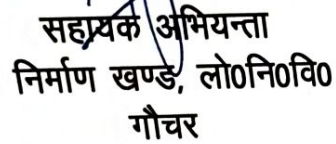 सहायक अभियन्ता
निर्माण खण्ड, लो0नि0वि0
गौचर